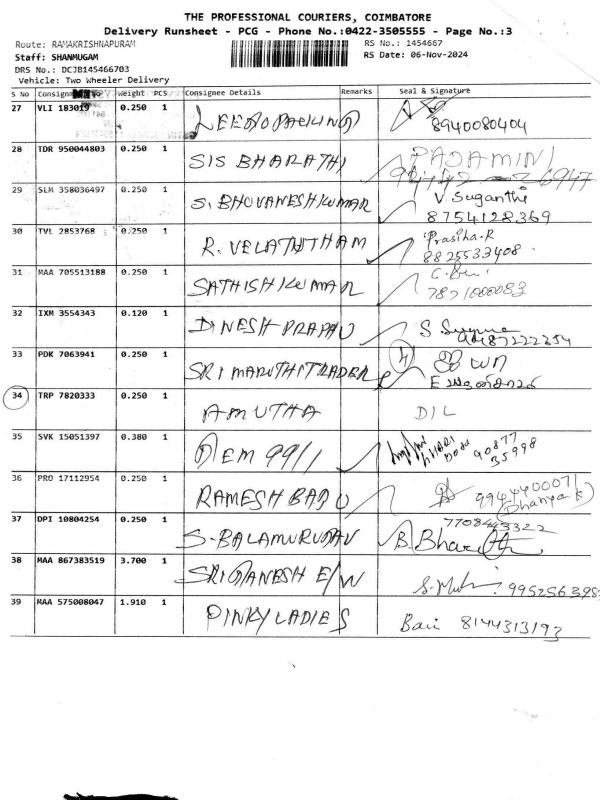 THE PROFESSIONAL COURIERS, COIMBATORE
Delivery Runsheet - PCG - Phone No.:0422-3505555 - Page No.:3
Route: RAMAKRISHNAPURAM RS No.: 1454667
Staff: SHANMUGAM RS Date: 06-Nov-2024
DRS No.: DCJB145466703
Vehicle: Two Wheeler Delivery
S No Weight PCS Consignee Details Remarks Seal & Signature
27 VLI 183019 0.250 1 8940080404
28 TDR 950044803 0.250 1 SIS BHARATHI PADAMINI
29 SLM 358036497 0.250 1 S. BHUVANESHKUMAR V. Suganthi
8754128369
30 TVL 2853768 0.250 1 R. VELATHTHAM Prasiha.R
8825533408
31 MAA 705513188 0.250 1 SATHISHKUMAR
32 IXM 3554343 0.120 1 DINESH PRABHU S
33 PDK 7063941 0.250 1 SRI MARUTHI TRADERS 4
34 TRP 7820333 0.250 1 AMUTHA DIL
35 SVK 15051397 0.380 1 90877
35998
36 PRO 17112954 0.250 1 RAMESH BABU 9944400071
Dhanya k
37 DPI 10804254 0.250 1 S. BALAMURUGAN 7708443322
B. Bharath
38 MAA 867383519 3.700 1 SRI GANESH E/W
39 MAA 575008047 1.910 1 PINKY LADIES 8144313193